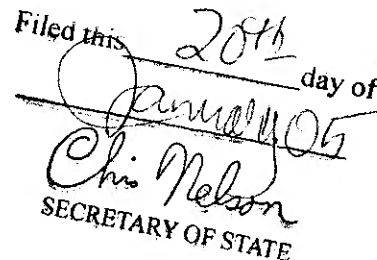 Filed this 20th day of
January 05
Chris Nelson
SECRETARY OF STATE